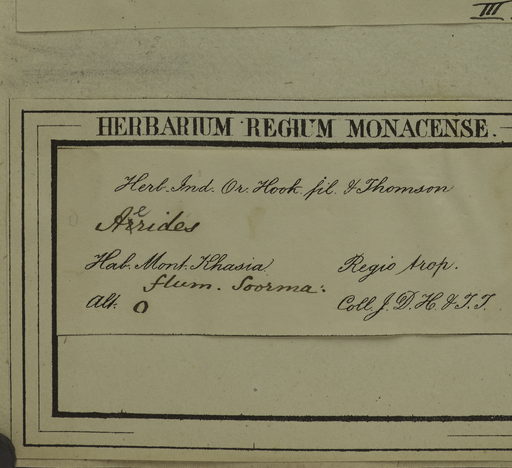 III
HERBARIUM REGIUM MONACENSE.
Herb. Ind. Or. Hook. fil. & Thomson
Aërides
Hab. Mont. Khasia Regio trop.
flum. Soorma:
Alt. O Coll. J. D. H. & T. T.